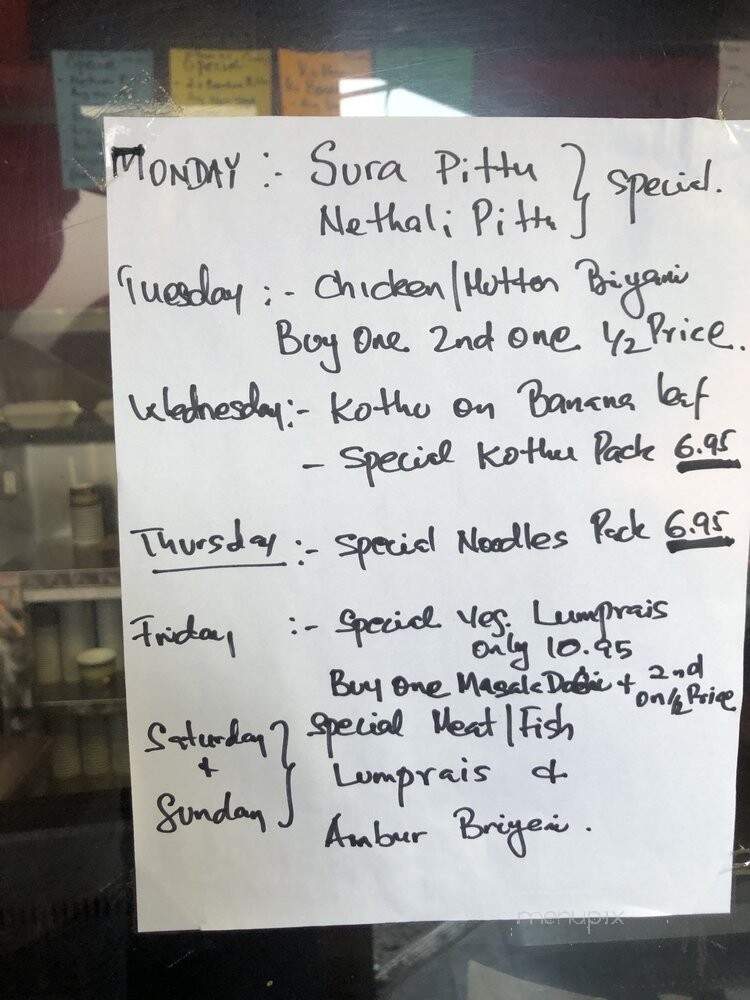 MONDAY :- Sura Pittu } Special.
Nethali Pittu
Tuesday :- Chicken/Mutton Biyani
Buy One 2nd one 1/2 Price.
Wednesday:- Kothu on Banana leaf
- Special Kothu Pack 6.95
Thursday :- Special Noodles Pack 6.95
Friday :- Special Veg. Lumprais
only 10.95
Buy One Masala + 2nd
on 1/2 Price
Saturday + Sunday } Special Meat/Fish
Lumprais &
Ambur Briyani.
menupix